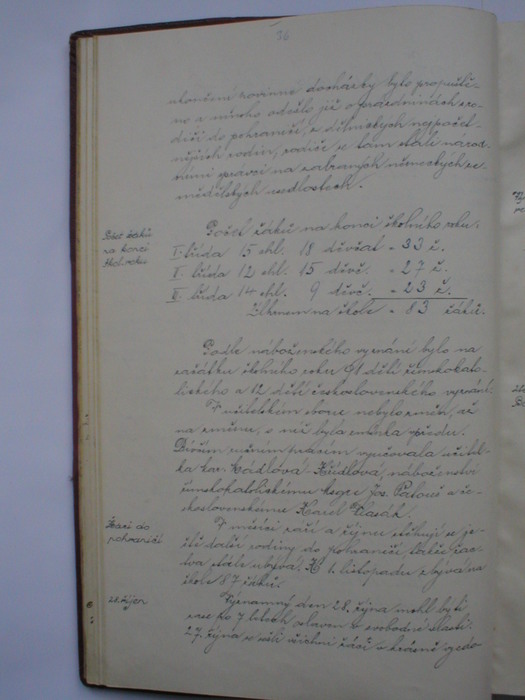 36
ukončené povinné docházky bylo propuště-
no a mnoho odešlo již o prázdninách ro-
diči do pohraničí, z dělnických nejpočet-
nějších rodin, rodiče se tam stali národ-
ními správci na zabraných německých ze-
mědělských usedlostech.
Počet žáků
na konci
škol. roku
Počet žáků na konci školního roku.
I. třída 15 chl. 18 děvčat = 33 ž.
II. třída 12 chl. 15 děvč. = 27 ž.
III. třída 14 chl. 9 děvč. = 23 ž.
Úhrnem na škole = 83 žáků.
Podle náboženského vyznání bylo na
začátku školního roku 91 dětí římskokato-
lického a 12 dětí československého vyznání.
V učitelském sboru nebylo změn, až
na změnu, o níž byla zmínka předu.
Dívčím ručním pracím vyučovala učitel-
ka kav. Hádlová-Křídlová, náboženství
římskokatolickému Jos. Patouš a če-
skoslovenskému Karel Vlasák.
Žáci do
pohraničí
V měsíci září a říjnu stěhují se je-
ště další rodiny do pohraničí takže žac-
tva stále ubývá. K 1. listopadu zbývá na
škole 87 žáků.
28. říjen
Významný den 28. října mohl býti
zase po 7 letech oslaven ve svobodné vlasti.
27. října se sešli všichni žáci v krásně vyzdo-